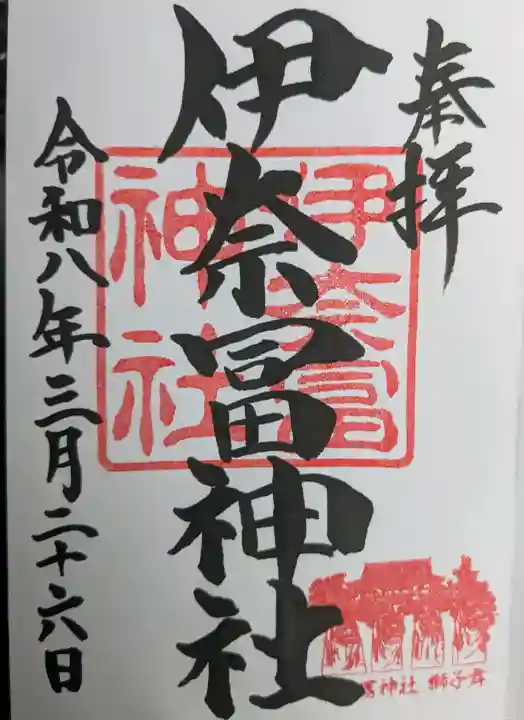 奉拝
伊奈冨神社
伊奈冨
神社
令和八年三月二十六日
冨神社 獅子舞